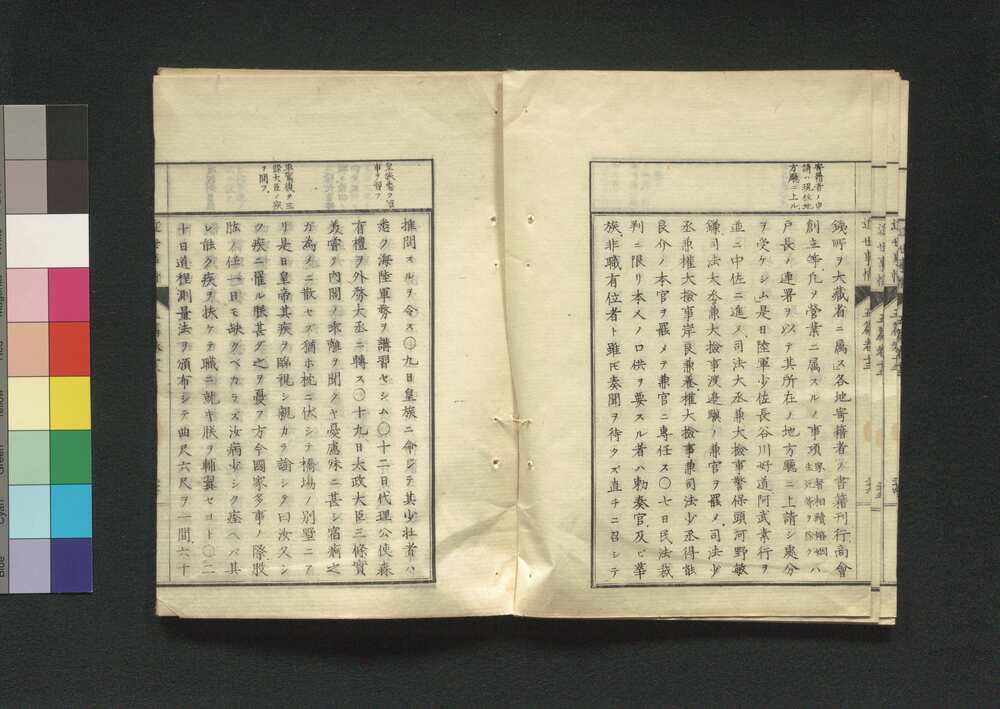 寄籍者ノ申
請ハ現在地
方廳ニ上ル
錢所ヲ大藏省ニ属ス」各地寄籍者ノ書籍刊行商會
創立等凡ヲ營業ニ属スルノ事項ハ
戸長ノ連署ヲ以テ其所在ノ地方廳ニ上請シ處分
ヲ受ケシム」是日陸軍少佐長谷川好道阿武素行ヲ
並ニ中佐ニ進メ司法大丞兼大撿事警保頭河野敏
鎌司法大丞兼大撿事渡邊驥ノ兼官ヲ罷メ司法少
丞兼權大撿事岸良兼養權大撿事兼司法少丞得能
良介ノ本官ヲ罷メテ兼官ニ専任ス〇七日民法裁
判ニ限リ本人ノ口供ヲ要スル者ハ勅奏官及ビ華
族非職有位者ト雖モ奏聞ヲ待タズ直チニ召シテ
近世事情
五篇卷十三
皇族海陸軍
事ヲ習フ
車駕復タ三
條大臣ノ疾
ヲ問フ
推問スルヲ令ス〇九日皇族ニ命シテ其少壮者ハ
悉ク海陸軍務ヲ講習セシム〇十二日代理公使森
有禮ヲ外務大丞ニ轉ス〇十九日太政大臣三條實
美嘗ク内閣ノ乖離ヲ聞クヤ憂慮殊ニ甚シ宿痾之
カ為メニ散セズ猶ホ枕ニ伏シテ橋場ノ別墅ニア
リ是日皇帝其疾ヲ臨視シ親カラ諭シテ曰汝又シ
ク疾ニ罹ル朕甚グ之ヲ憂フ方今國家多事ノ際股
肱ノ任一日モ缺クベカラズ汝病少シク痊ヘバ其
レ能ク疾ヲ扶ケテ職ニ就キ朕ヲ輔翼セヨト〇二
十日道程測量法ヲ頒布シテ曲尺六尺ヲ一間六十